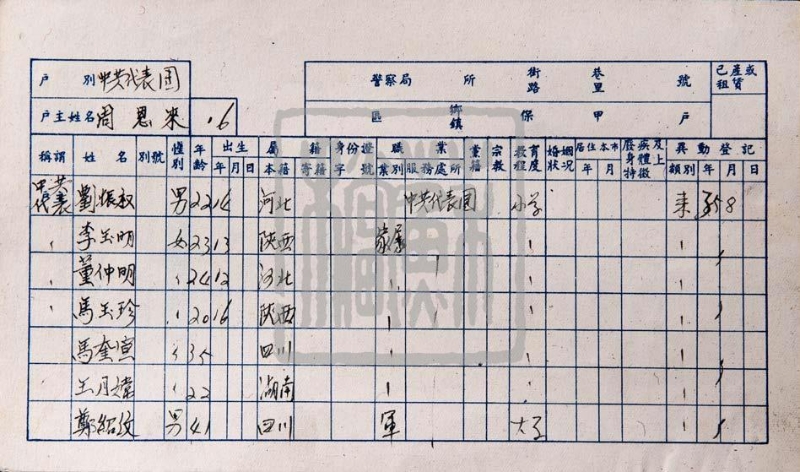 戶別 中共代表團 警察局 所 街路 巷里 號 已產或租賃
戶主姓名 周恩來 .6 區 鄉鎮 保 甲 戶
稱謂 姓名 別號 性別 年齡 出生年月日 屬籍 本籍 寄籍 身份證字號 職業 業別 服務處所 黨籍 宗教 教育程度 婚姻狀況 居住本市年月 廢疾及身體上特徵 異動登記 類別 年月日
中共代表 劉振叔 男 22 14 河北 中共代表團 小学 来 35 8
、 李玉明 女 23 13 陝西 家屬 、 、 、
、 董仲明 、 24 12 河北 、 、 、 、
、 馬玉珍 、 20 16 陝西 、 、 、 、
馬奎宣 、 35 四川 、 、 、 、
王月 、 22 湖南 、 、 、 、
鄭紹文 男 41 四川 軍 、 大 、